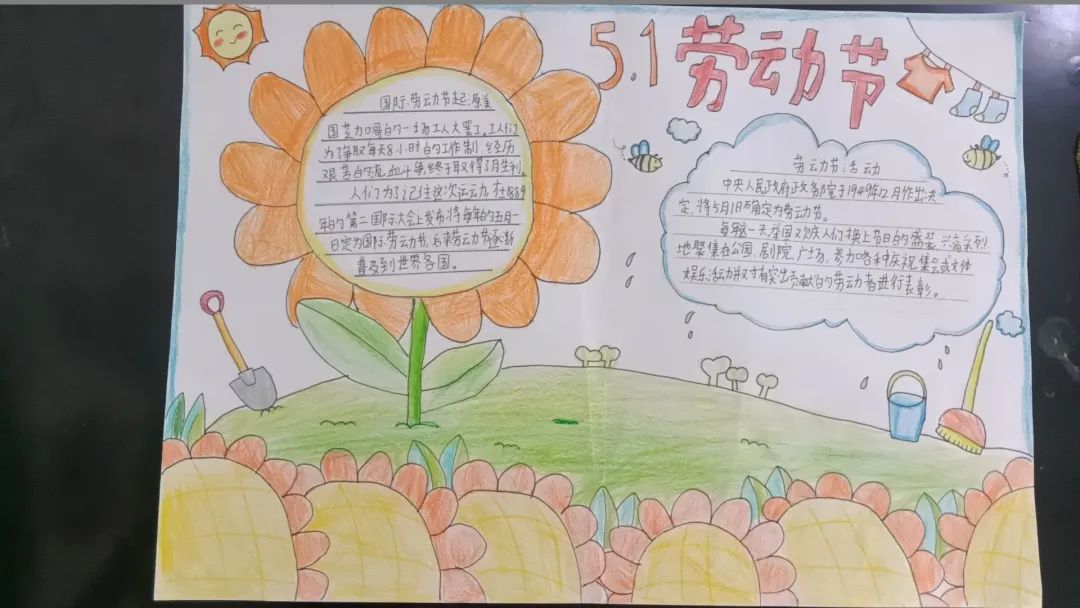 5.1 劳动节
国际劳动节起源美
国芝加哥的一场工人大罢工。工人们
为了争取每天8小时的工作制,经历
艰苦的流血斗争,终于取得了胜利。
人们为了记住这次运动,在1889
年的第二国际大会上发布将每年的五月一
日定为国际劳动节,后来劳动节逐渐
普及到世界各国。
劳动节活动
中央人民政府政务院于1949年12月作出决
定,将5月1日确定为劳动节。
每年这一天举国欢庆人们换上节日的盛装,兴高采烈
地聚集在公园、剧院、广场,参加各种庆祝集会或文体
娱乐活动并对有突出贡献的劳动者进行表彰。